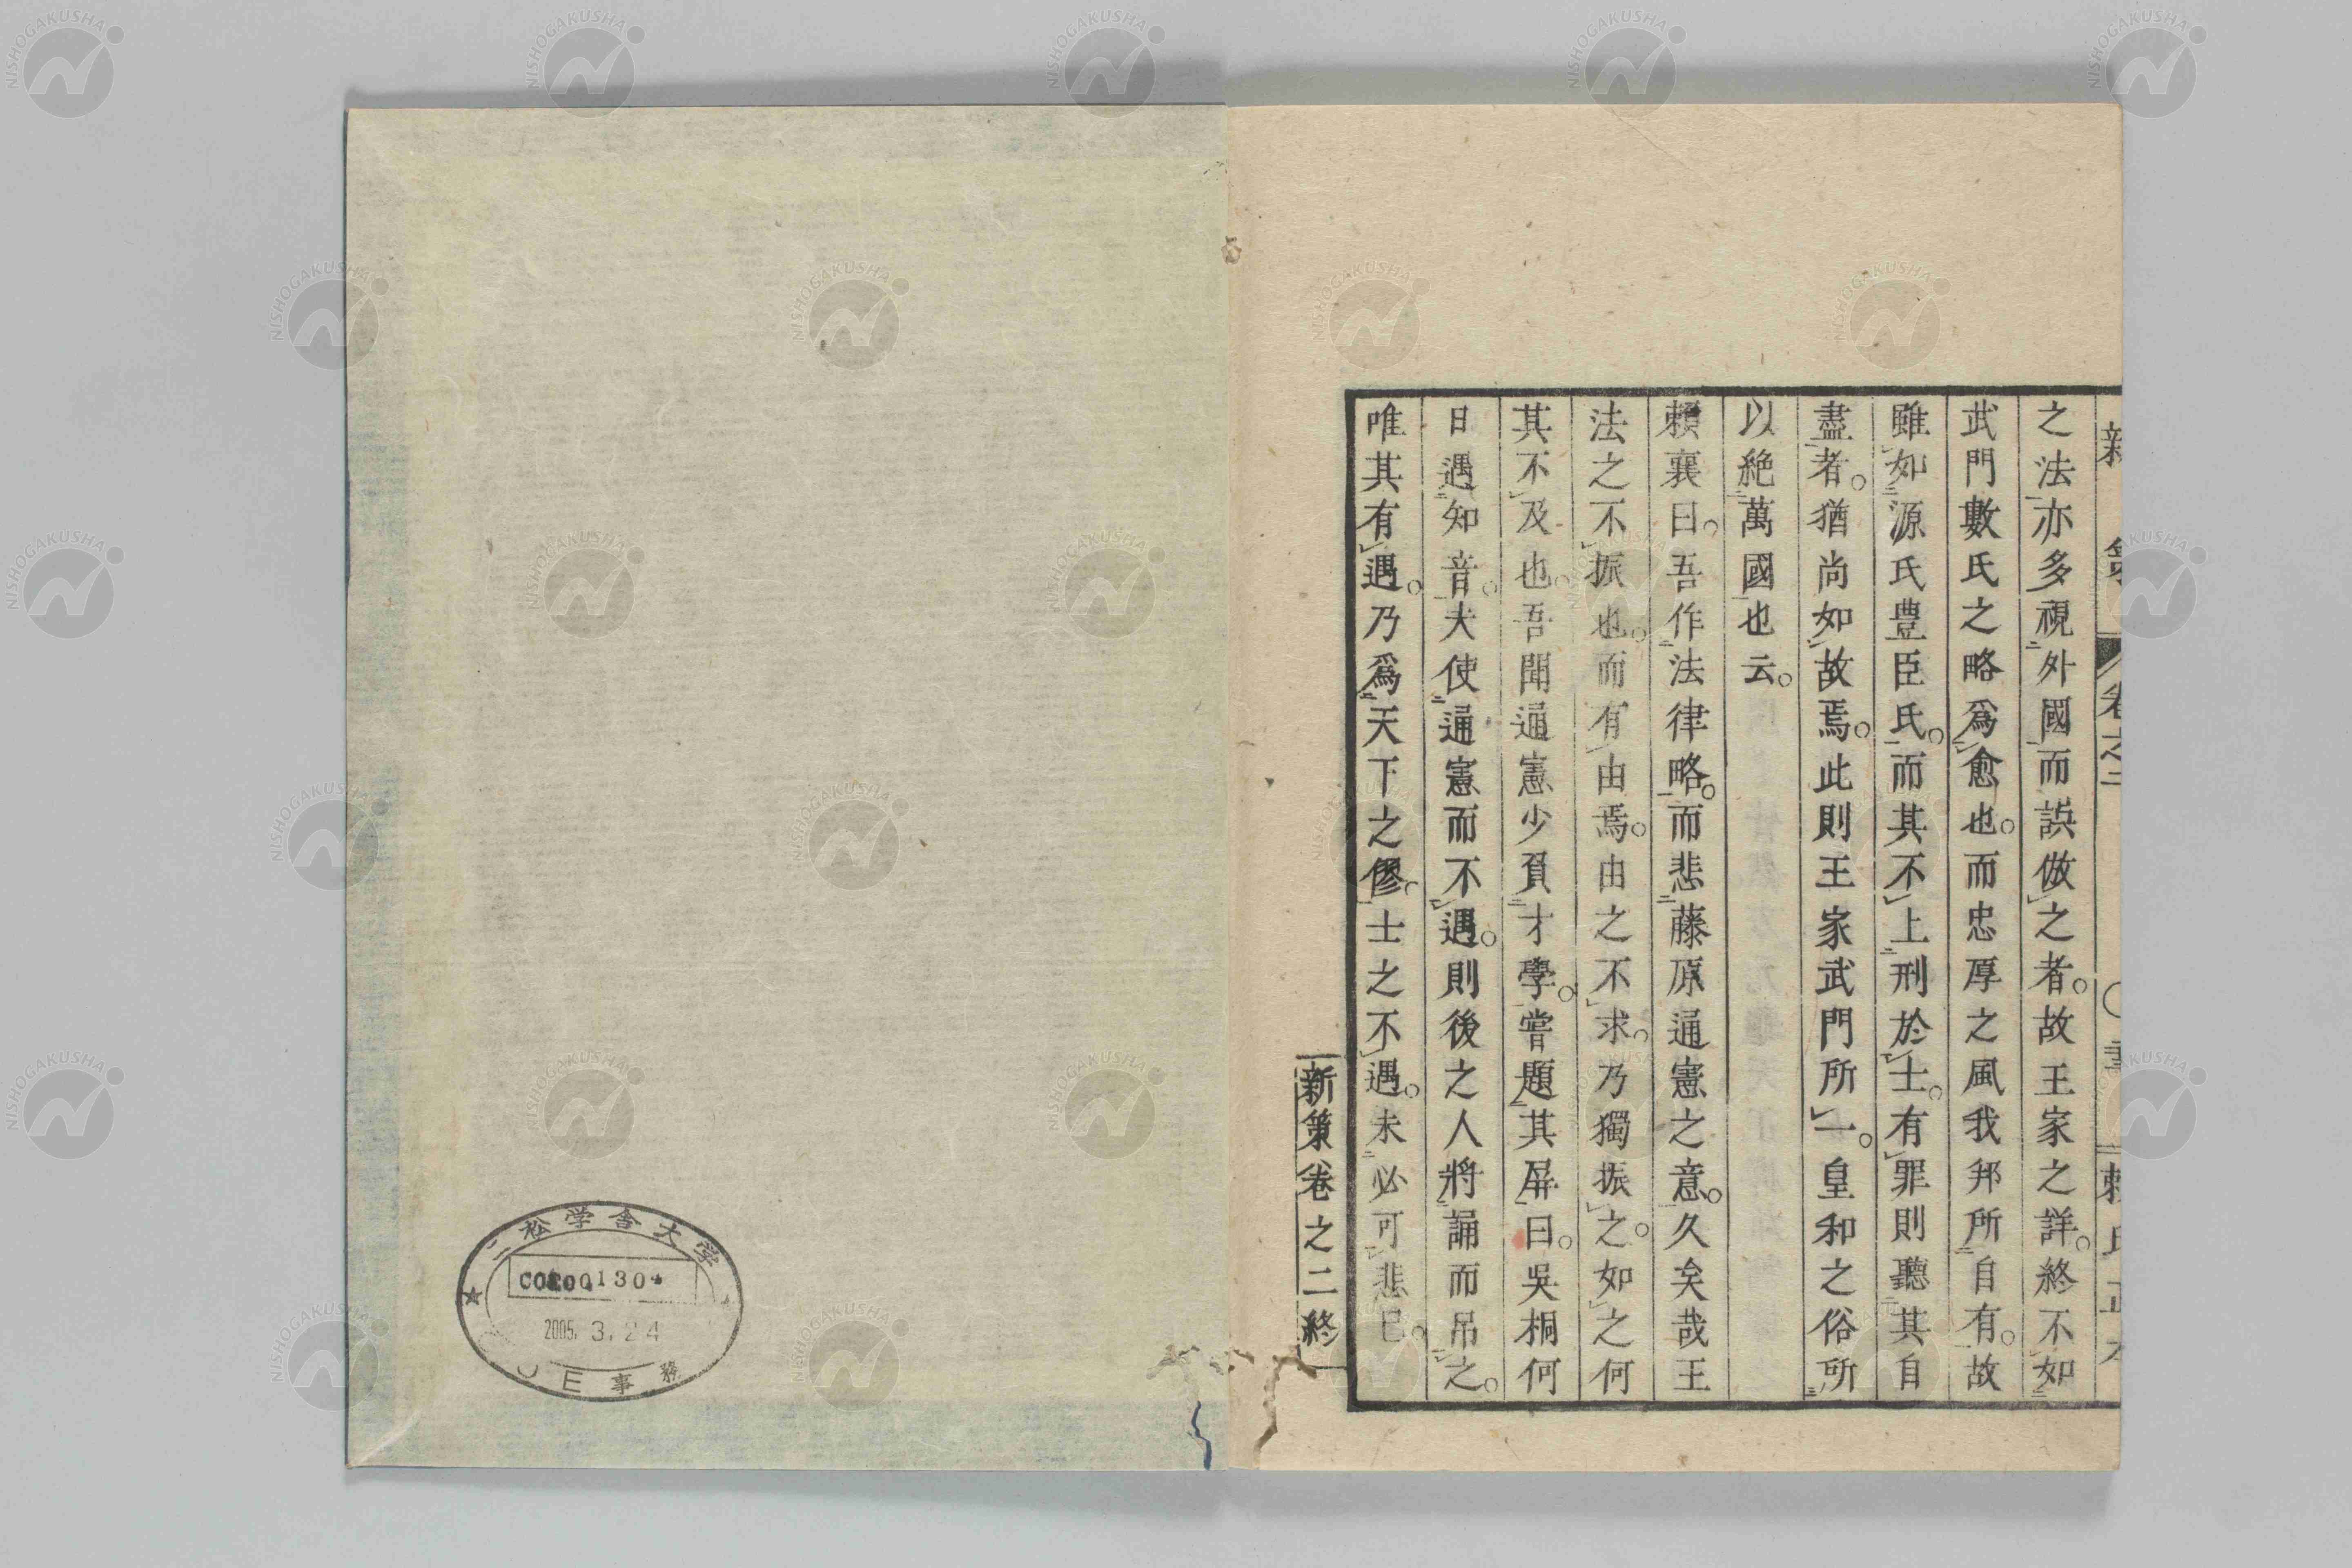 之法亦多視外國而誤倣之者。故王家之詳。終不如
武門數氏之略爲愈也。而忠厚之風我邦所自有。故
雖如源氏豊臣氏。而其不上刑於士。有罪則聽其自
盡者。猶尚如故焉。此則王家武門所一。皇和之俗所
以絶萬國也云。
賴襄曰。吾作法律略。而悲藤原通憲之意。久矣哉王
法之不振也。而有由焉。由之不求。乃獨振之。如之何
其不及也。吾聞通憲少負才學。嘗題其屏曰。吳桐何
日遇知音。夫使通憲而不遇。則後之人將誦而吊之。
唯其有遇。乃爲天下之僇。士之不遇。未必可悲已。
新策卷之二終
二松学舎大学
2005. 3. 24
COE事務
NISHOGAKUSHA